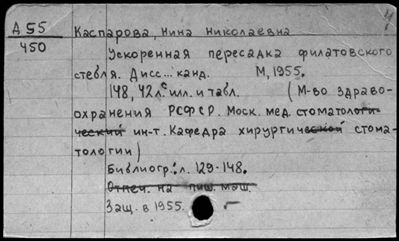 Д55 Каспарова, Нина Николаевна
450
Ускоренная пересадка филатовского
стебля. Дисс... канд. М, 1955.
148, 42 л. с илл. и табл. (М-во здраво-
охранения РСФСР. Моск. мед. стоматологи-
ческий ин-т. Кафедра хирургической стома-
тологии)
Библиогр.: л. 129-148.
Отпеч. на пиш. маш.
Защ. в 1955.